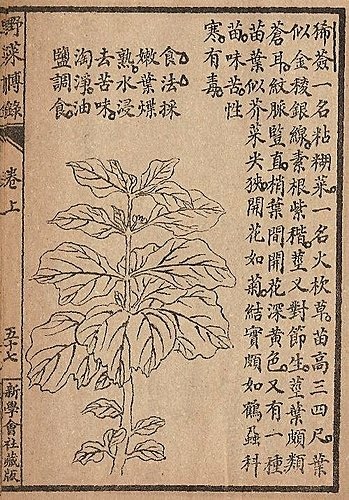 狶薟一名粘糊菜。一名火杴草。苗高三四尺。葉
似金稜銀線。素根紫稭。莖叉對節生。莖葉頗類
蒼耳。紋脈豎直。梢葉間開花。深黃色。又有一種
苗葉似芥菜尖狹。開花如菊。結實頗如鶴蝨。科
苗味苦。性
寒。有毒。
食法。採
嫩葉煠
熟水浸
去苦味。
淘淨。油
鹽調食。
野菜博錄
卷上
五十七
新學會社藏版